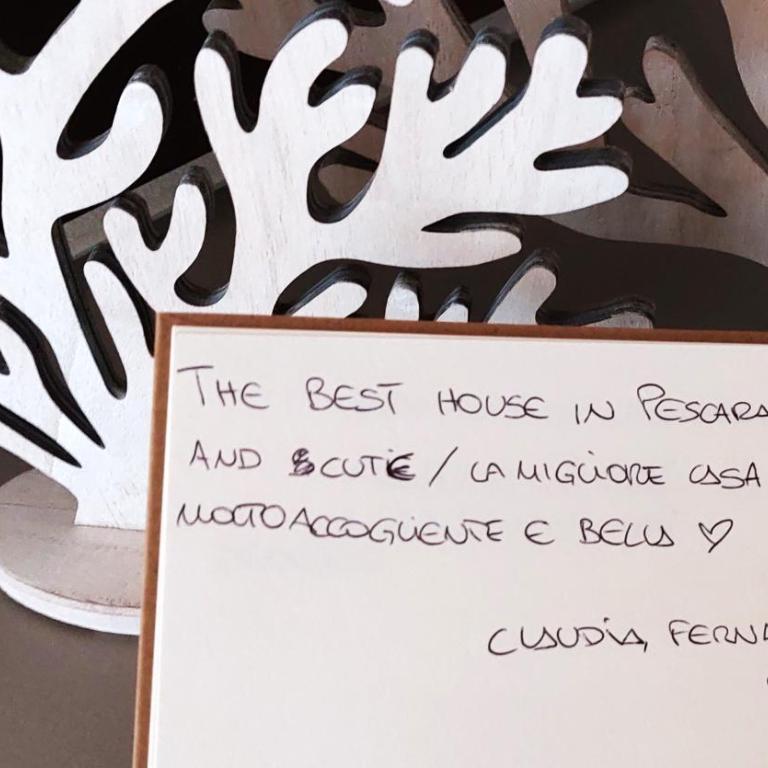 THE BEST HOUSE IN PESCARA
AND CUTE / LA MIGLIORE CASA
MOLTO ACCOGLIENTE E BELLA ♡
CLAUDIA,